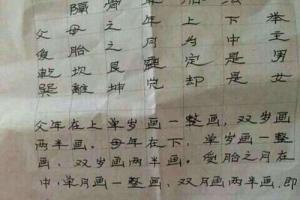 父母之年上下举
受胎之月为中主
乾坎艮震定是男
巽離坤兑却是女
父年在上单岁画一整画，双岁画
两半画。母年在下，单岁画一整
画，双岁画两半画。受胎之月在
中，单月画一整画，双月画两半画，即